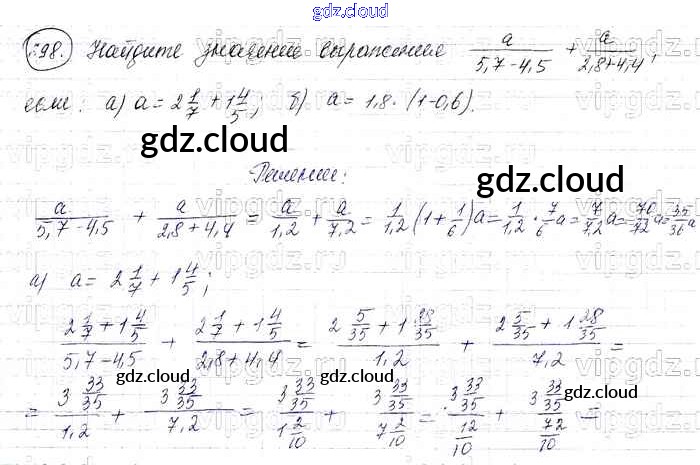 gdz.cloud
598. Найдите значение выражения a/(5,7-4,5) + a/(2,8+4,4),
если: а) a = 2 1/7 + 1 4/5; б) a = 1,8 · (1-0,6).
gdz.cloud
gdz.cloud
Решение:
a/(5,7-4,5) + a/(2,8+4,4) = a/1,2 + a/7,2 = 1/1,2 · (1+1/6)a = 1/1,2 · 7/6 a = 7/7,2 a = 70/72 a = 35/36 a
а) a = 2 1/7 + 1 4/5;
(2 1/7 + 1 4/5)/(5,7-4,5) + (2 1/7 + 1 4/5)/(2,8+4,4) = (2 5/35 + 1 28/35)/1,2 + (2 5/35 + 1 28/35)/7,2 =
gdz.cloud gdz.cloud gdz.cloud gdz.cloud
= (3 33/35)/1,2 + (3 33/35)/7,2 = (3 33/35)/(1 2/10) + (3 33/35)/(7 2/10) = (3 33/35)/(12/10) + (3 33/35)/(72/10) =